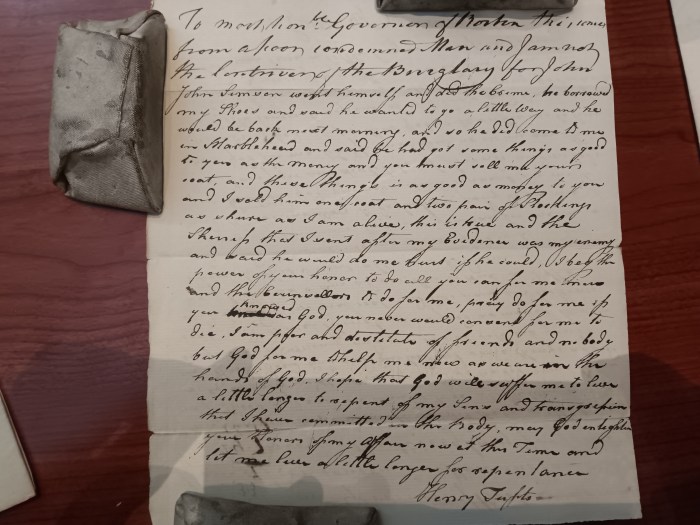 To most hon,ble Governor of Boston this, comes
from a poor condemned Man and I am not
the of the Burglary for John
John Simson went himself and did the Crime, he borrowed
my Shoes and said he wanted to go a little Way and he
would be back next morning, and so he did come to me
in Marblehead and said he had got some things as good
to you as the money and you must sell me your
coat, and these Things is as good as money to you
and I sold him one coat and two pair of Stockings
as shure as I am alive, this is true and the
Sherrif that I sent after my Evidence was my enemy
and said he would do me hurt if he could, I beg the
power of your honor to do all you can for me now
and the to do for me, pray do for me if
you knowed God, you never would consent for me to
die, I am poor and destitute of friends and nobody
but God for me to help me now as we are in the
hands of God, I hope that God will suffer me to liver
a little longer to repent of my Sins and
that I have committed in the body, may God enlighten
your Honors of my affair now at this Time and
let me liver a little longer for repentance
Henry Tufts